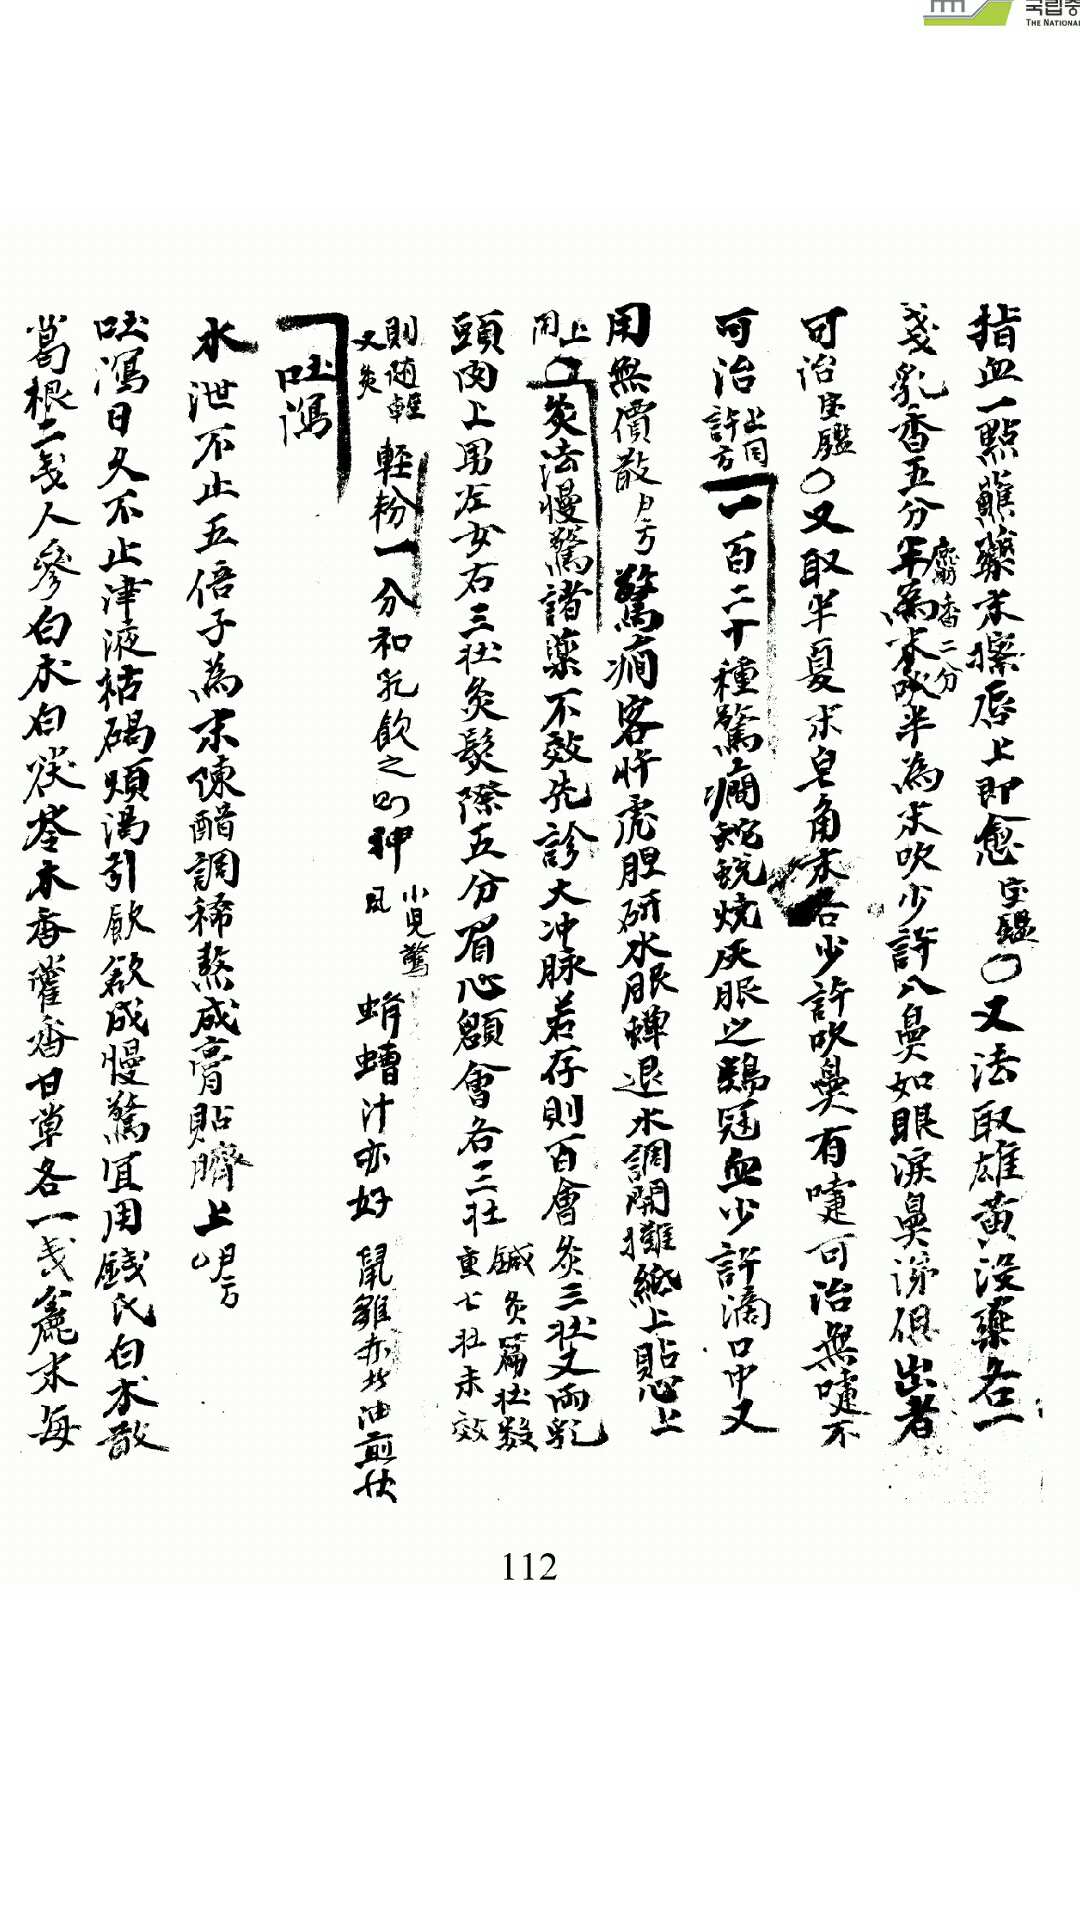 국립중
THE NATIONAL
指血一點蘸藥末擦唇上卽愈 宝鑑 ○又法取雄黃沒藥各一
戔乳香五分 麝香二分 半為末吹半為末吹少許入鼻如眼淚鼻涕俱出者
可治 宝鑑 ○又取半夏末皂角末各少許吹鼻有嚏可治無嚏不
可治 上同 許方 一百二十種驚癎蛇蛻燒灰服之鷄冠血少許滴口中又
用無價散 見方 驚癎客忤虎胆硏水服蟬退水調開攤紙上貼心上
上同 ○灸法慢驚諸藥不效先診大冲脉若存則百會灸三壯又兩乳
頭肉上男左女右三壯灸髮際五分眉心顖會各三壯 鍼灸篇壯数 重七壯未效
則随輕 又灸 輕粉一分和乳飮之 小児驚風 蠐螬汁亦好 鼠雛赤 油煎
吐瀉
水泄不止五倍子為末陳醋調稀熬成膏貼臍上 見方
吐瀉日久不止津液枯碣煩渴引飮欲成慢驚宜用錢氏白朮散
葛根二戔人參白朮白茯苓木香藿香甘草各一戔麁末每
112